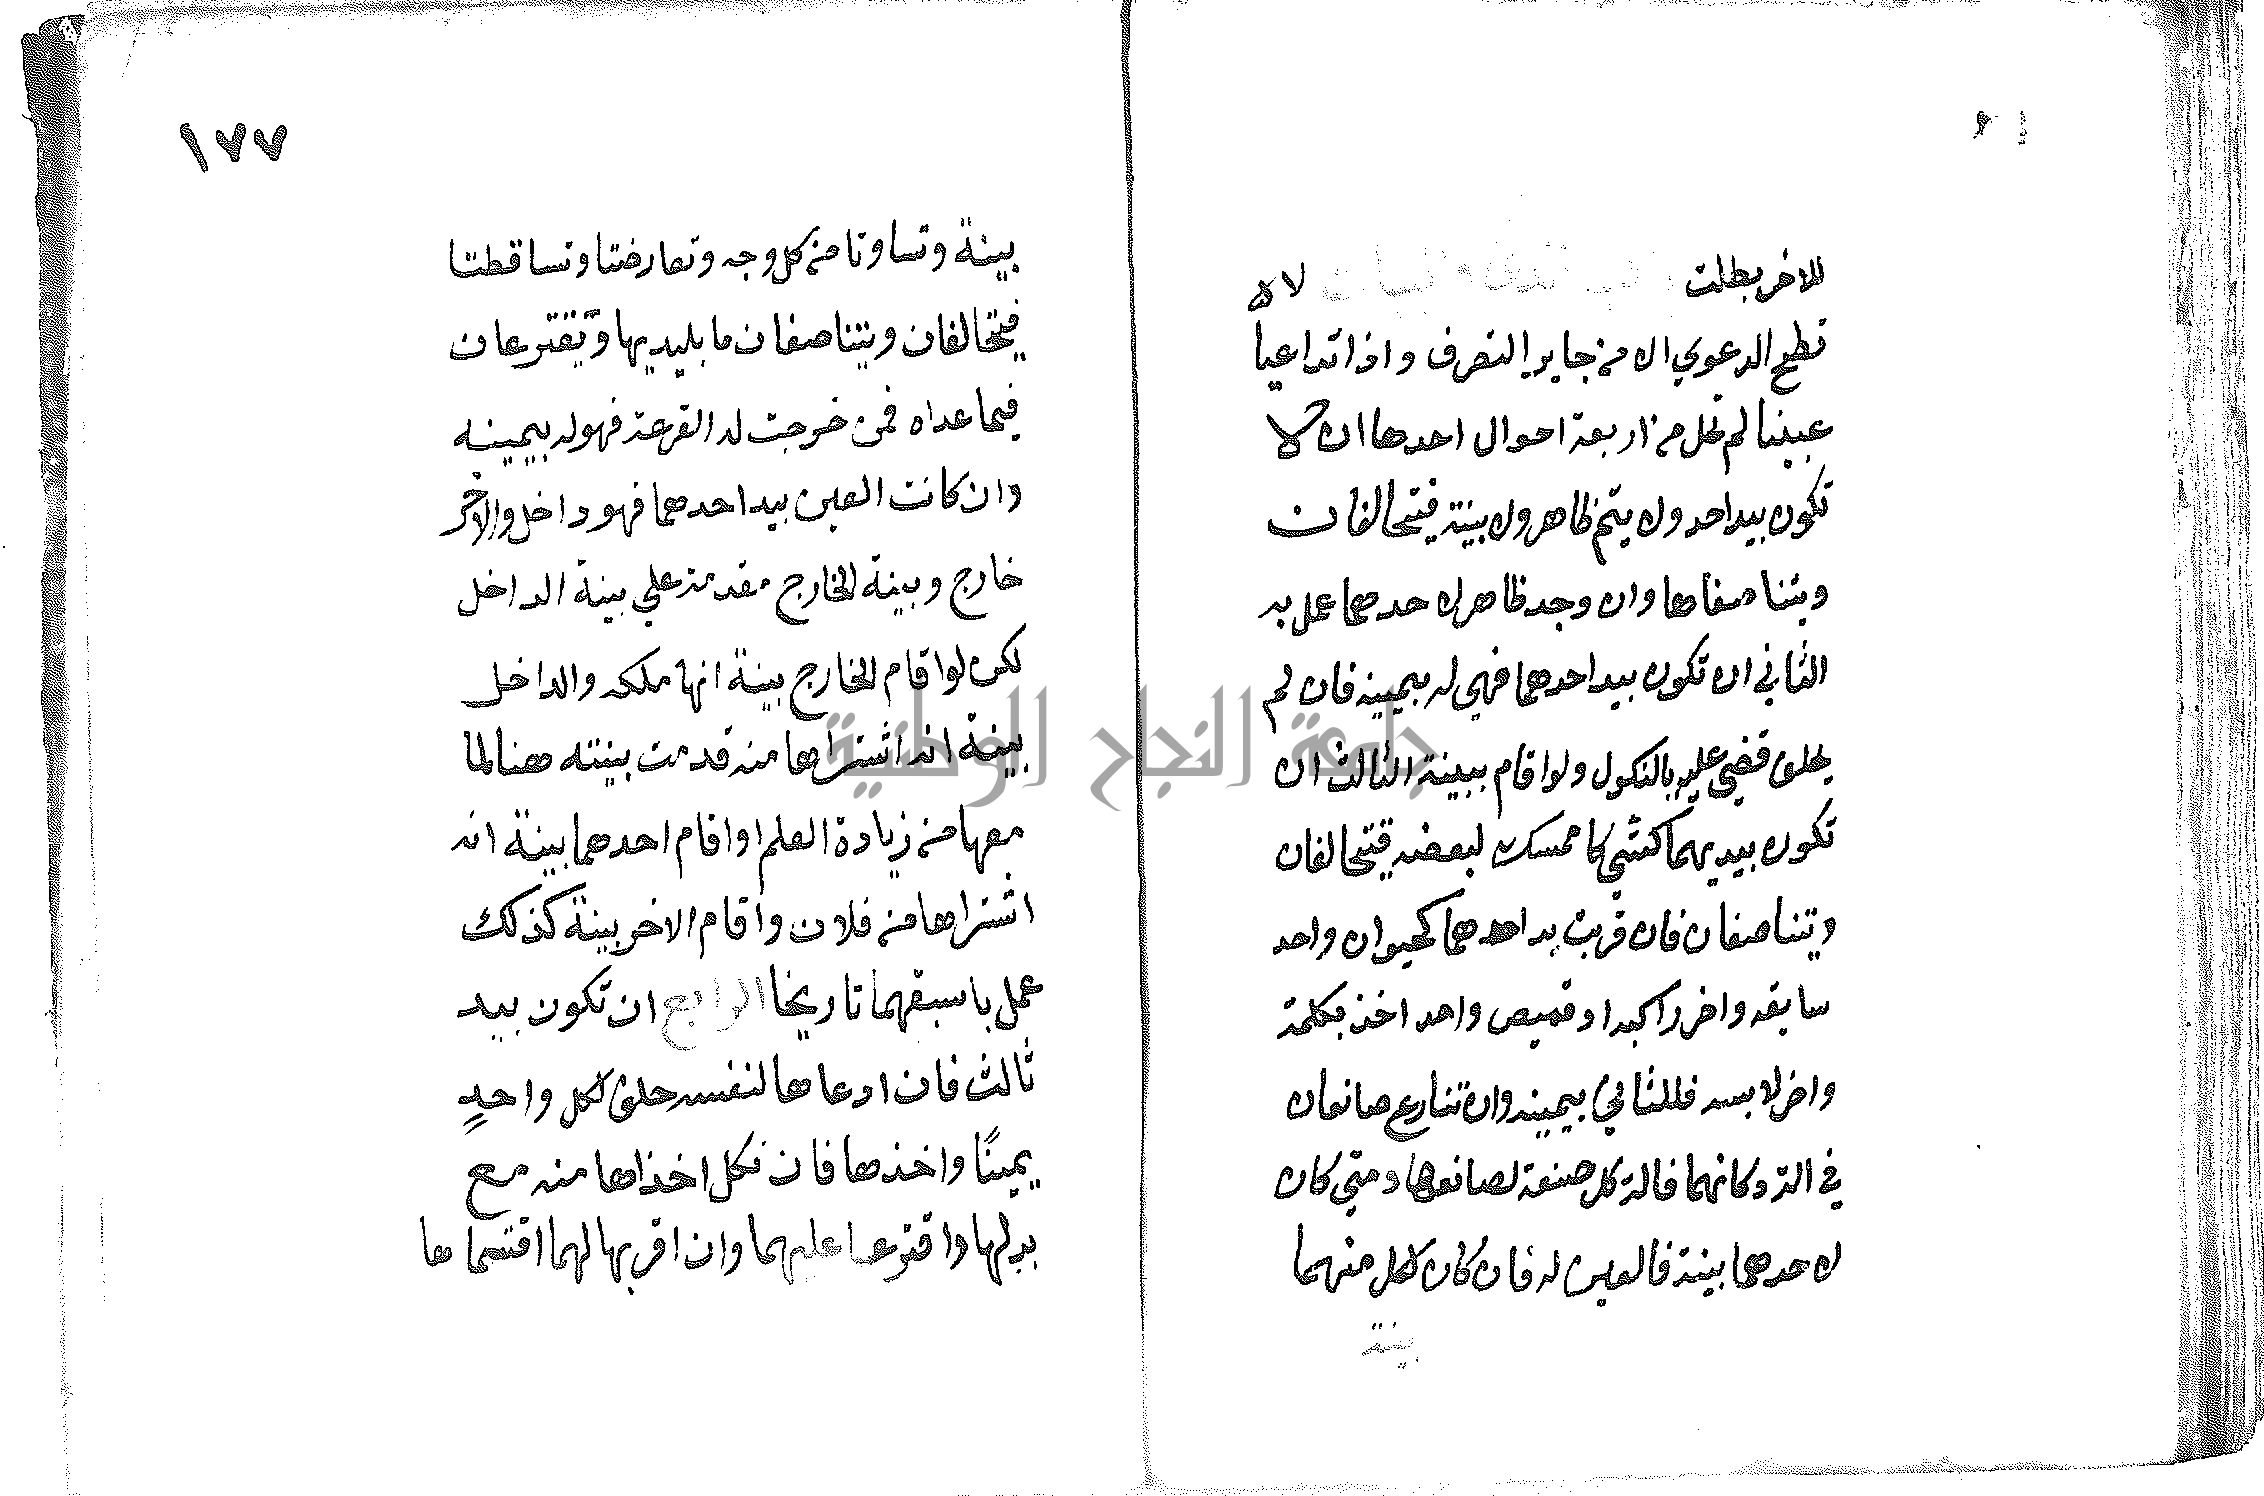 للاخر بطلت لا
تصح الدعوي الا من جايز التصرف واذا تداعيا
عينا لم تخل من اربعة احوال احدها ان لا
تكون بيد احد ولا يتم ظاهر ولا بينة فيتحالفان
ويتناصفاها وان وجد ظاهر لاحدهما عمل به
الثاني ان تكون بيد احدهما فهي له بيمينه فان لم
يحلف قضي عليه بالنكول ولو اقام ببينة الثالث ان
تكون بيديهما كشي كل ممسك لبعضه فيتحالفان
ويتناصفان فان قربت يد احدهما كحيوان واحد
سايقه واخر راكبه او قميص واحد اخذ بكمه
واخر لابسه فللثاني بيمينه وان تنازع صانعان
في الة دكانهما فالة كل صنعة لصانعها ومتي كان
لاحدهما بينة فالعين له فان كان لكل منهما
بينة
١٧٧
بينة وتساوتا من كل وجه وتعارضتا وتساقطتا
فيتحالفان ويتناصفان ما بايديهما ويقترعان
فيما عداه فمن خرجت له القرعة فهو له بيمينه
وان كانت العين بيد احدهما فهو داخل والاخر
خارج وبينة الخارج مقدمة علي بينة الداخل
لكن لو اقام الخارج بينة انها ملكه والداخل
بينة انه اشتراها منه قدمت بينته هنا لما
معها من زيادة العلم او اقام احدهما بينة انه
اشتراها من فلان واقام الاخر بينة كذلك
عمل باسبقهما تاريخا الرابع ان تكون بيد
ثالث فان ادعاها لنفسه حلف لكل واحدٍ
يمينًا واخذها فان نكل اخذاها منه مع
بدلها واقترعا عليهما وان اقر بها لهما اقتسماها
جامعة النجاح الوطنية